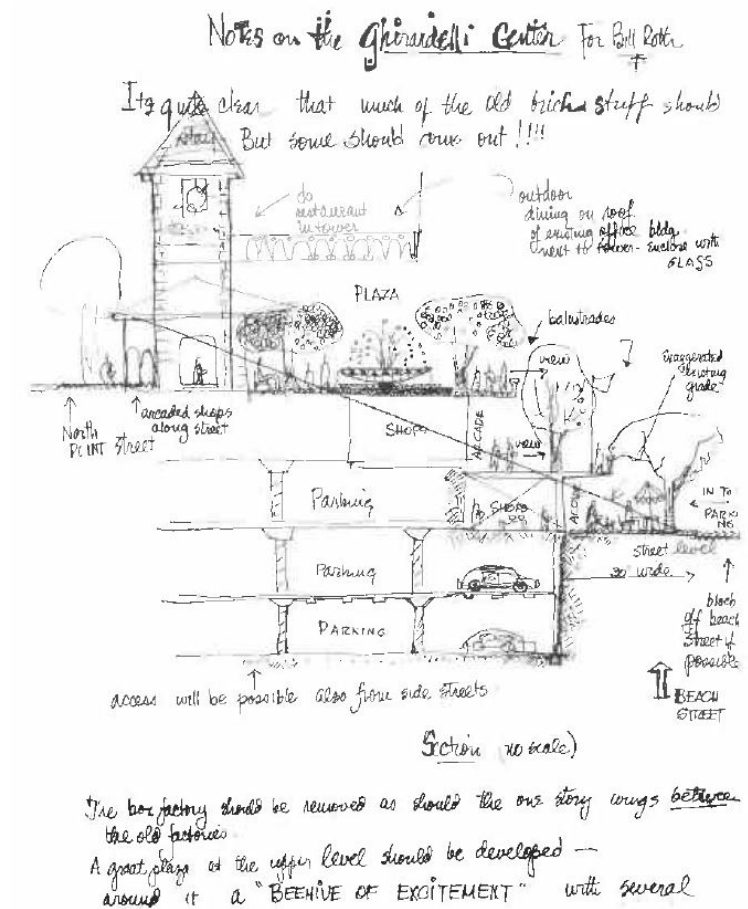 Notes on the Ghirardelli Center For Bill Roth
Its quite clear that much of the old brick stuff should
But some should come out!!!!
do
restaurant
in tower
outdoor
dining on roof
of existing office bldg
next to tower - enclose with
GLASS
PLAZA
balustrades
view
exaggerated
existing
grade
North
POINT Street
arcaded shops
along street
SHOPS
ARCADE
view
Parking
SHOPS
IN TO
PARKI
NG
street level
30' wide
Parking
PARKING
block
off beach
street if
possible
BEACH
STREET
access will be possible also from side streets
Section no scale)
The box factory should be removed as should the one story wings between
the old factories
A great plaza at the upper level should be developed —
around it a "BEEHIVE OF EXCITEMENT" with several